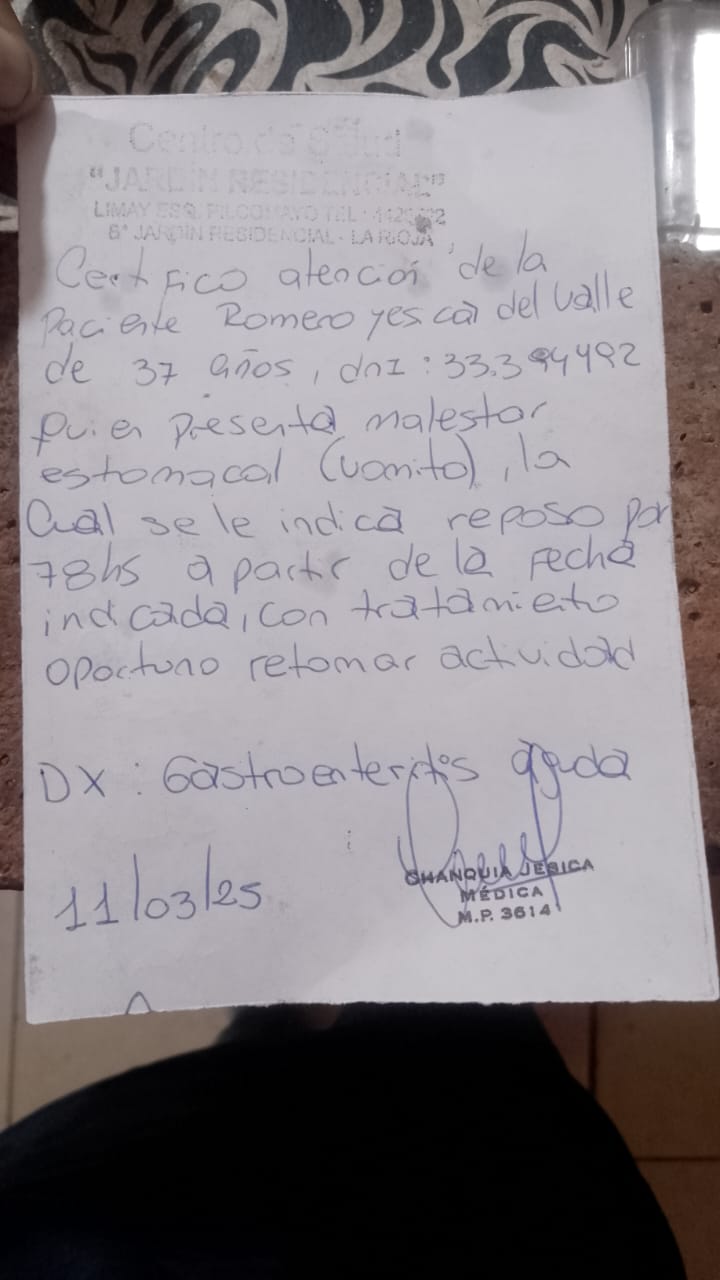 Centro de Salud
"JARDIN RESIDENCIAL"
LIMAY ESQ. PILCOMAYO TEL: 442
6° JARDIN RESIDENCIAL - LA RIOJA
Certifico atención de la
Paciente Romero yesica del valle
de 37 años, dnI: 33.394492
quien presenta malestar
estomacal (vomito), la
Cual se le indica reposo por
78hs a partir de la fecha
indicada, con tratamiento
oportuno retomar actividad
DX: Gastroenteritis aguda
11/03/25
CHANQUIA JESICA
MÉDICA
M.P. 3614